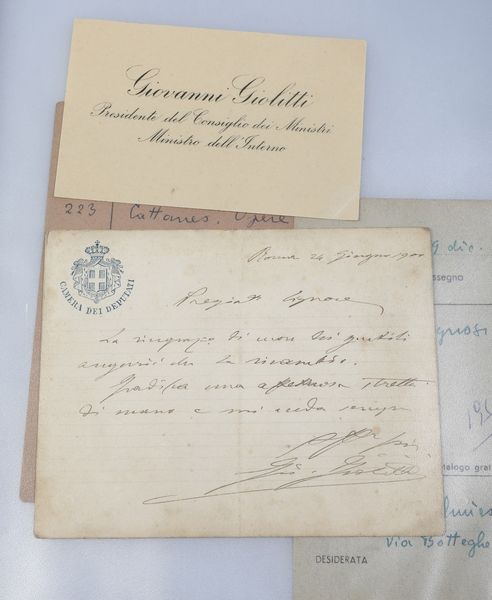 Giovanni Giolitti
Presidente del Consiglio dei Ministri
Ministro dell'Interno
223 Cattaneo. Opere
9 dic.
CAMERA DEI DEPUTATI
Roma 24 Giugno 1900
Pregiat Signore
La ringrazio di cuore dei gentili
auguri che La ricambio.
Gradisca una affettuosa stretta
di mano e mi creda sempre
Gio. Giolitti
segno
195
talogo gra
Via Botteghe
DESIDERATA